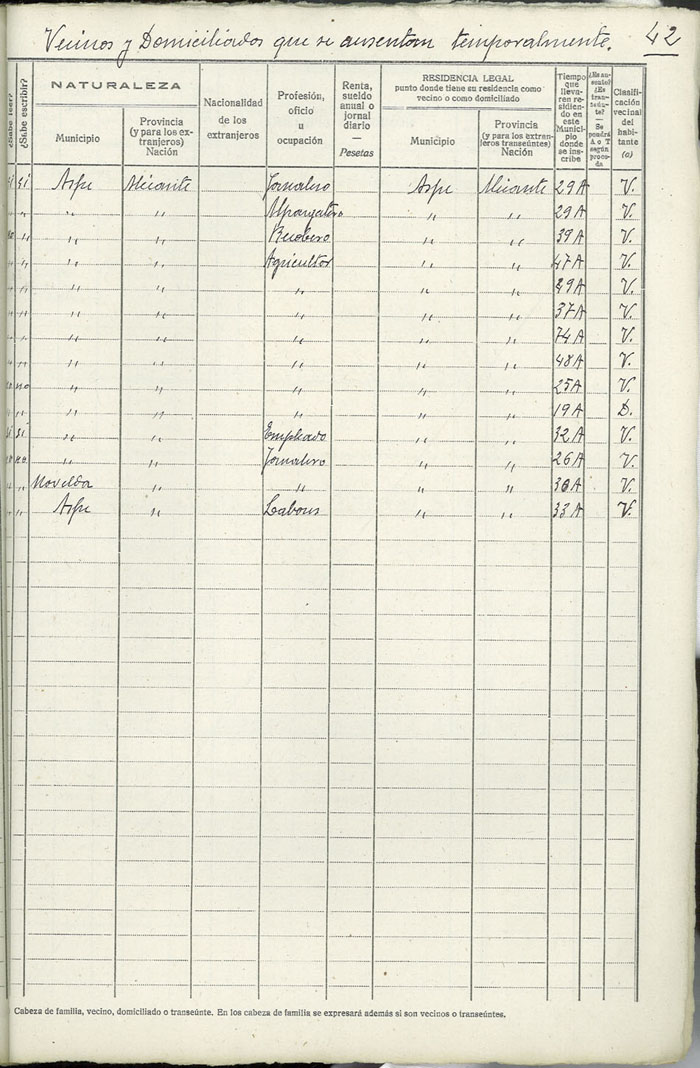 Vecinos y Domiciliados que se ausentan temporalmente. 42
¿Sabe leer? ¿Sabe escribir? NATURALEZA Municipio Provincia (y para los extranjeros) Nación Nacionalidad de los extranjeros Profesión, oficio u ocupación Renta, sueldo anual o jornal diario — Pesetas RESIDENCIA LEGAL punto donde tiene su residencia como vecino o como domiciliado Municipio Provincia (y para los extranjeros transeúntes) Nación Tiempo que llevaren residiendo en este Municipio donde se inscribe ¿Es ausente? ¿Es transeúnte? — Se pondrá A o T según proceda Clasificación vecinal del habitante (a)
sí sí Aspe Alicante Jornalero Aspe Alicante 29 A V.
" " " " Alpargatero " " 29 A V.
no " " " " " 39 A V.
" " " " Agricultor " " 47 A V.
" " " " " " " 29 A V.
" " " " " " " 37 A V.
" " " " " " " 74 A V.
" " " " " " " 48 A V.
no no " " " " " 25 A V.
" " " " " " 19 A D.
sí sí " " Empleado " " 32 A V.
no no " " Jornalero " " 26 A V.
" " Novelda " " " " 30 A V.
" " Aspe " Labores " " 33 A V.
Cabeza de familia, vecino, domiciliado o transeúnte. En los cabeza de familia se expresará además si son vecinos o transeúntes.